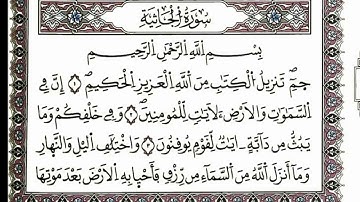 سُورَةُ الْجَاثِيَةِ
بِسْمِ اللَّهِ الرَّحْمَٰنِ الرَّحِيمِ
حَمِٓ تَنزِيلُ الْكِتَٰبِ مِنَ اللَّهِ الْعَزِيزِ الْحَكِيمِ ١ إِنَّ فِي
السَّمَٰوَٰتِ وَالَارْضِ ءَلَايَٰتٍ لِّلْمُومِنِينَ ٢ وَفِي خَلْقِكُمْ وَمَا
يَبُثُّ مِن دَآبَّةٍ ـ ايَٰتٌ لِّقَوْمٍ يُوقِنُونَ ٣ وَاخْتِلَٰفِ الَّيْلِ وَالنَّهَارِ
وَمَآ أَنزَلَ اللَّهُ مِنَ السَّمَآءِ مِن رِّزْقٍ فَأَحْيَا بِهِ الَارْضَ بَعْدَ مَوْتِهَا